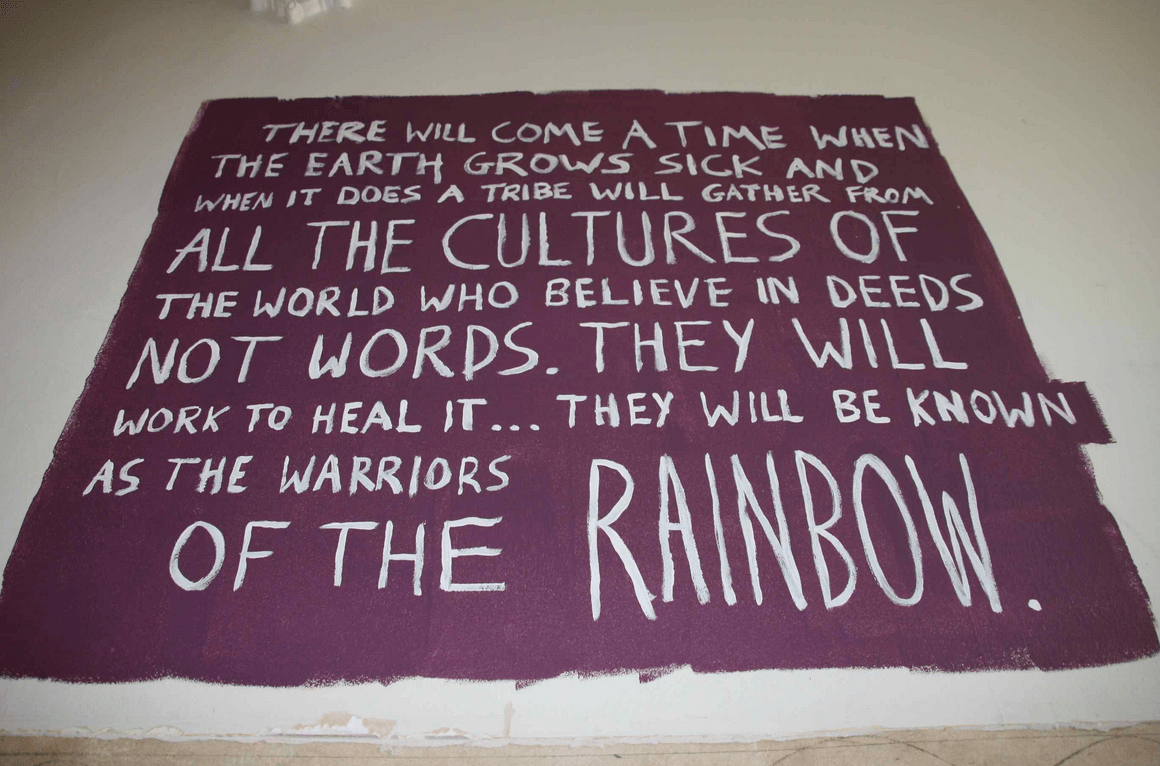 THERE WILL COME A TIME WHEN
THE EARTH GROWS SICK AND
WHEN IT DOES A TRIBE WILL GATHER FROM
ALL THE CULTURES OF
THE WORLD WHO BELIEVE IN DEEDS
NOT WORDS. THEY WILL
WORK TO HEAL IT... THEY WILL BE KNOWN
AS THE WARRIORS
OF THE RAINBOW.